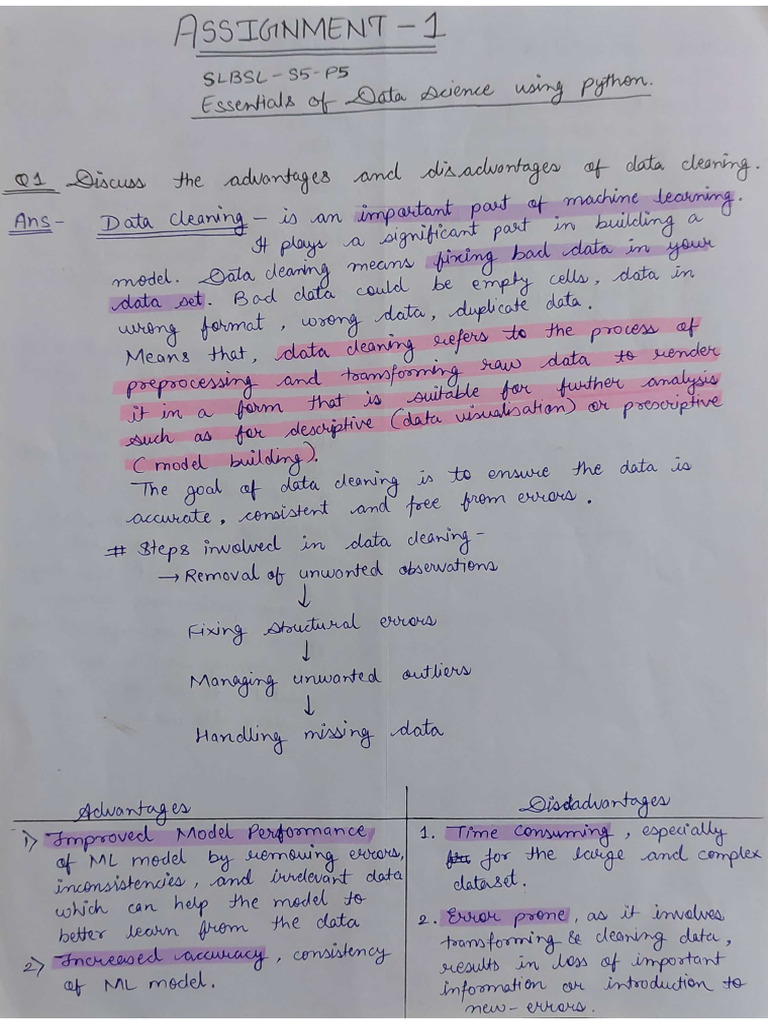 ASSIGNMENT - 1
SLBSL - S5 - P5
Essentials of Data Science using python.
Q1 Discuss the advantages and disadvantages of data cleaning.
Ans - Data Cleaning - is an important part of machine learning.
It plays a significant part in building a
model. Data cleaning means fixing bad data in your
data set. Bad data could be empty cells, data in
wrong format, wrong data, duplicate data.
Means that, data cleaning refers to the process of
preprocessing and transforming raw data to render
it in a form that is suitable for further analysis
such as for descriptive (data visualisation) or prescriptive
(model building).
The goal of data cleaning is to ensure the data is
accurate, consistent and free from errors.
# Steps involved in data cleaning -
→ Removal of unwanted observations
↓
Fixing structural errors
↓
Managing unwanted outliers
↓
Handling missing data
Advantages
1) Improved Model Performance
of ML model by removing errors,
inconsistencies, and irrelevant data
which can help the model to
better learn from the data
2) Increased accuracy, consistency
of ML model.
Disadvantages
1. Time Consuming, especially
for the large and complex
dataset.
2. Error prone, as it involves
transforming & cleaning data,
results in loss of important
information or introduction to
new-errors.